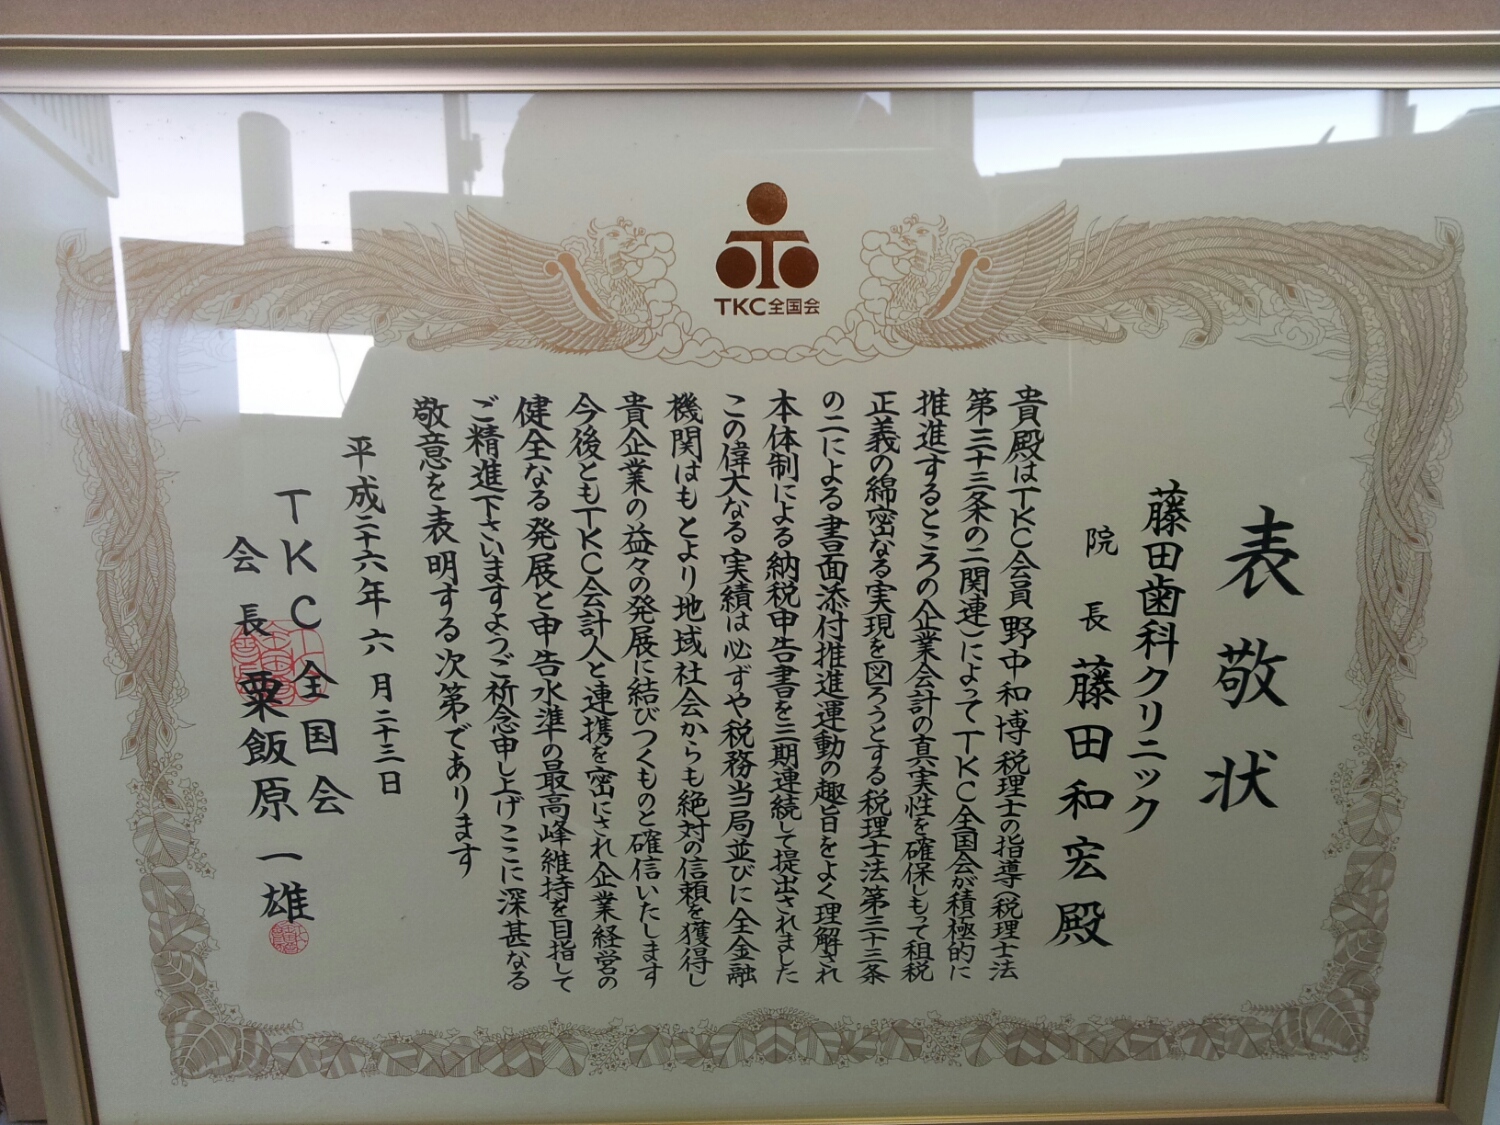 TKC全国会
表敬状
藤田歯科クリニック
院長 藤田和宏殿
貴殿はTKC会員野中和博税理士の指導(税理士法
第三十三条の二関連)によってTKC全国会が積極的に
推進するところの企業会計の真実性を確保しもって租税
正義の綿密なる実現を図ろうとする税理士法第三十三条
の二による書面添付推進運動の趣旨をよく理解され
本体制による納税申告書を三期連続して提出されました
この偉大なる実績は必ずや税務当局並びに全金融
機関はもとより地域社会からも絶対の信頼を獲得し
貴企業の益々の発展に結びつくものと確信いたします
今後ともTKC会計人と連携を密にされ企業経営の
健全なる発展と申告水準の最高峰維持を目指して
ご精進下さいますようご祈念申し上げここに深甚なる
敬意を表明する次第であります
平成二十六年六月二十三日
TKC全国会
会長 粟飯原一雄